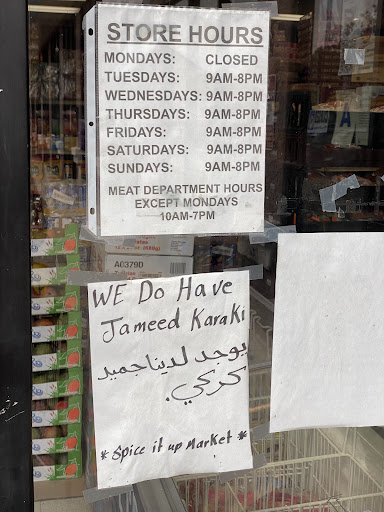 STORE HOURS
MONDAYS: CLOSED
TUESDAYS: 9AM-8PM
WEDNESDAYS: 9AM-8PM
THURSDAYS: 9AM-8PM
FRIDAYS: 9AM-8PM
SATURDAYS: 9AM-8PM
SUNDAYS: 9AM-8PM
MEAT DEPARTMENT HOURS
EXCEPT MONDAYS
10AM-7PM
A0379D
WE Do Have
Jameed Karaki
يوجد لدينا جميد
كركي.
* Spice it up Market *